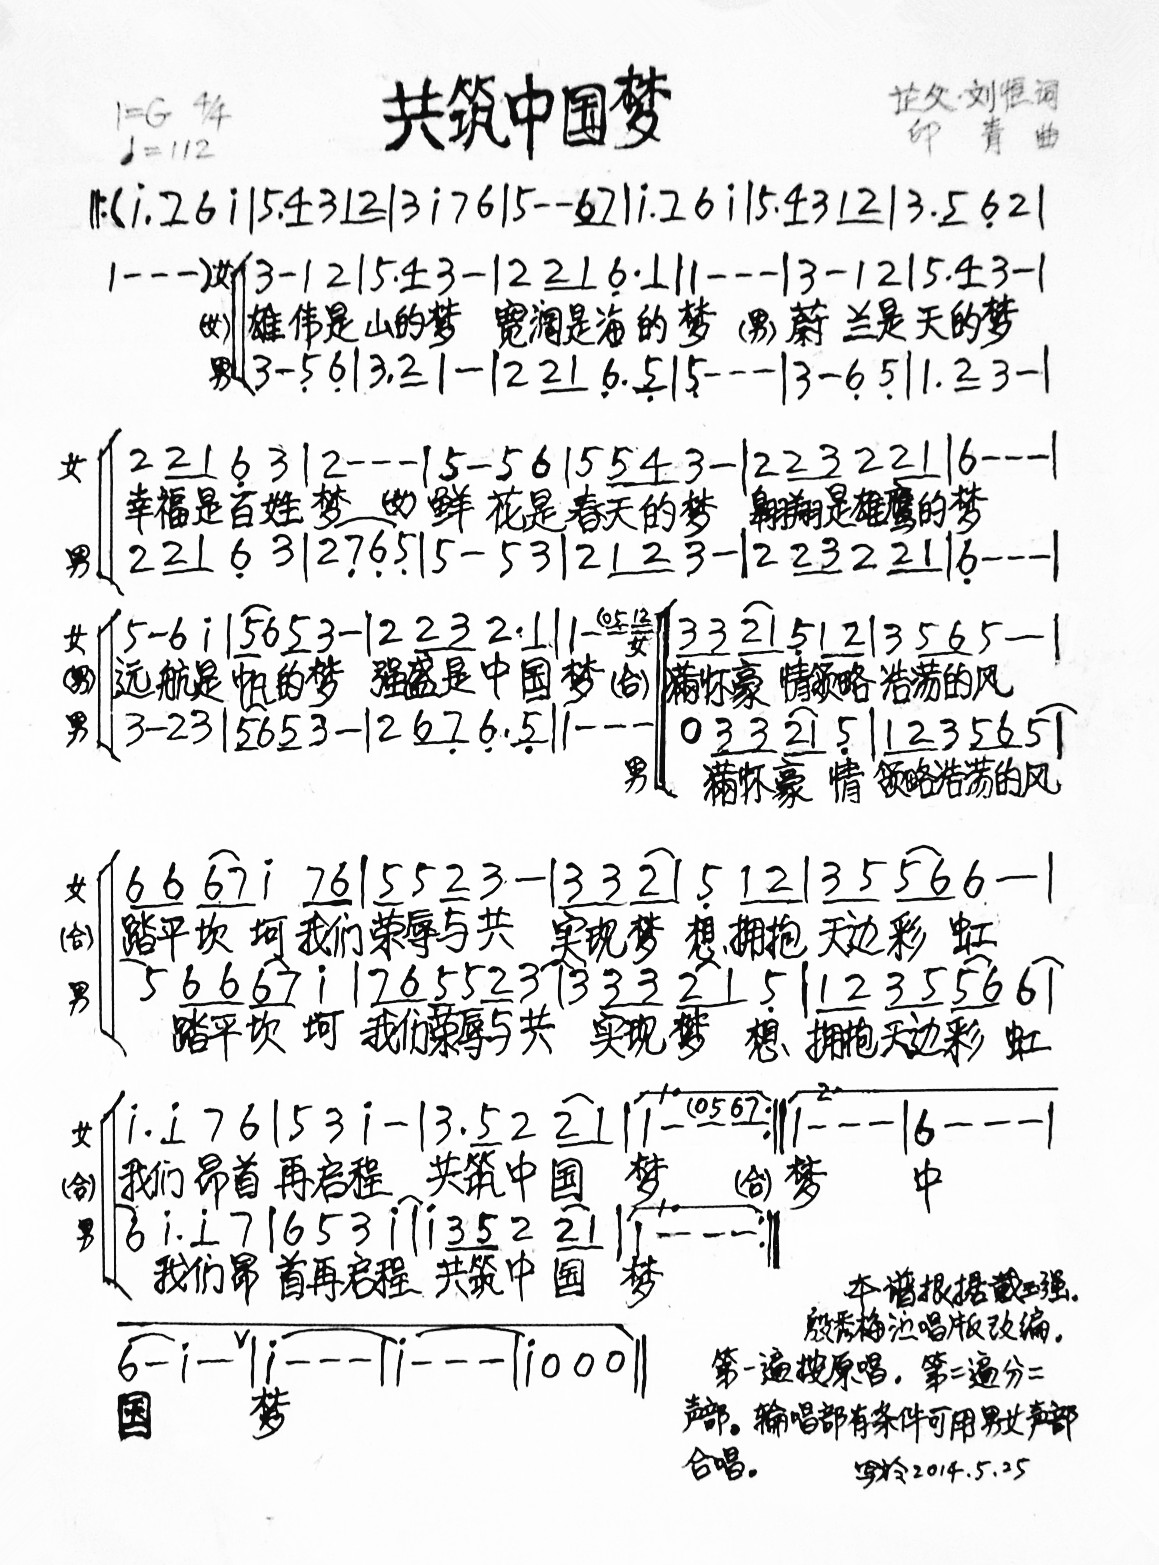 共筑中国梦
1=G 4/4
♩=112
芷父·刘恒词
印青曲
‖:(i.7 6 i|5.4 3 1 2|3 i 7 6|5--6 7|i.7 6 i|5.4 3 1 2|3.5 6 2|
1---)女 3-1 2|5.4 3-|2 2 1 6.1|1---|3-1 2|5.4 3-|
(女) 雄伟是山的梦 宽阔是海的梦 (男) 蔚兰是天的梦
男 3-5 6|3.2 1-|2 2 1 6.5|5---|3-6 5|1.2 3-|
女 2 2 1 6 3|2---|5-5 6|5 5 4 3-|2 2 3 2 2 1|6---|
幸福是百姓梦 (女) 鲜花是春天的梦 翱翔是雄鹰的梦
男 2 2 1 6 3|2 7 6 5|5-5 3|2 1 2 3-|2 2 3 2 2 1|6---|
女 5-6 i|5 6 5 3-|2 2 3 2.1|1-(0 5 1 2 女 3 3 2 1 5 1 2|3 5 6 5--|
(男) 远航是帆的梦 强盛是中国梦 (合) 满怀豪情领略浩荡的风
男 3-2 3|5 6 5 3-|2 6 7 6.5|1--- 0 3 3 2 1 5|1 2 3 5 6 5|
男 满怀豪情领略浩荡的风
女 6 6 6 7 i 7 6|5 5 2 3-|3 3 2 1 5 1 2|3 5 5 6 6-|
(合) 踏平坎坷我们荣辱与共 实现梦想拥抱天边彩虹
男 5 6 6 6 7 i|7 6 5 5 2 3|3 3 3 2 1 5|1 2 3 5 5 6 6|
踏平坎坷 我们荣辱与共 实现梦想 拥抱天边彩虹
女 i.i 7 6|5 3 i-|3.5 2 2 1|1. 1-(0 5 6 7:‖2. 1---|6---|
(合) 我们昂首再启程 共筑中国梦 (合) 梦 中
男 6 i.i 7|6 5 3 i|i 3 5 2 2 1|1. 1---:‖
我们昂首再启程 共筑中国梦
本谱根据戴玉强.
殷秀梅泣唱版改编.
6-i-∨|i---|i---|i 0 0 0‖
国 梦
第一遍按原唱.第二遍分二
声部。轮唱部有条件可用男女声部
合唱。 写於2014.5.25